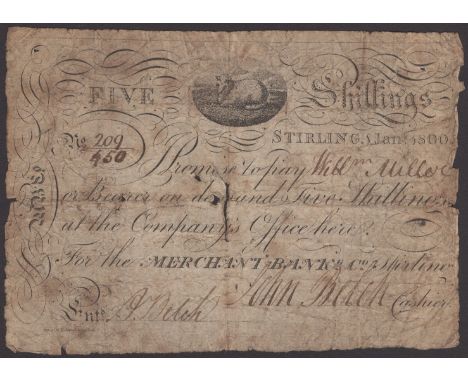 FIVE Shillings
STIRLING, Jany. 1800.
No. 209/450
I Promise to pay Willm Miller
or Bearer on demand Five Shillings
at the Company's Office here.
For the MERCHANT BANKg. Co. of Stirling
John Belch Cashier
Entd. J. Belch